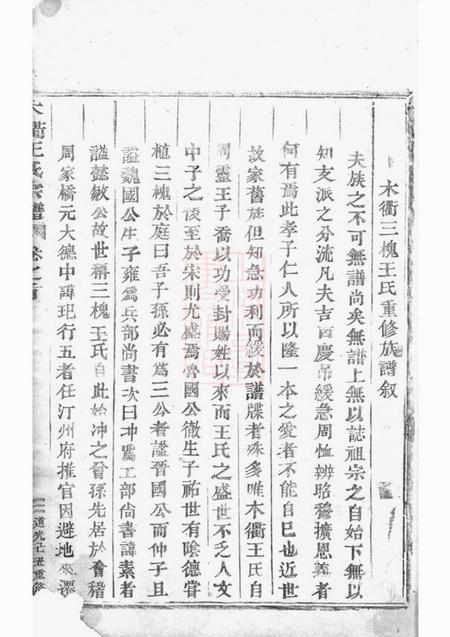 木衢三槐王氏重修族譜叙
夫族之不可無譜尚矣無譜上無以誌祖宗之自始下無以
知支派之分流凡夫吉凶慶弔緩急周恤辨昭穆擴恩義者
何有焉此孝子仁人所以隆一本之愛者不能自已也近世
故家舊族但知急功利而緩於譜牒者殊多唯木衢王氏自
周靈王子喬以功受封賜姓以來而王氏之盛世不乏人文
中子之後至於宋則尤盛焉魯國公徹生子祐世有陰德嘗
植三槐於庭曰吾子孫必有為三公者謚晉國公而仲子旦
謚魏國公生子雍為兵部尚書次曰冲為工部尚書諱素者
謚懿敏公故世稱三槐王氏自此始冲之曾孫先居於會稽
周家橋元大德中諱玘行五者任汀州府推官因避地來遷
木衢王氏宗譜 卷之首
道光己丑重修